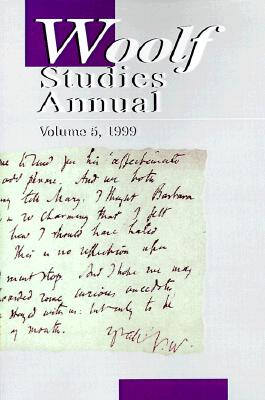 Woolf
Studies
Annual
Volume 5, 1999
me to send you his affectionate
add please. And we both
tell Mary. I thought Barbara
so charming that I felt
how I should have hated
This is no reflection upon
must stop. But I hope we may
some curious anecdotes
stayed with us: but only to be
of mouth.
V.W.